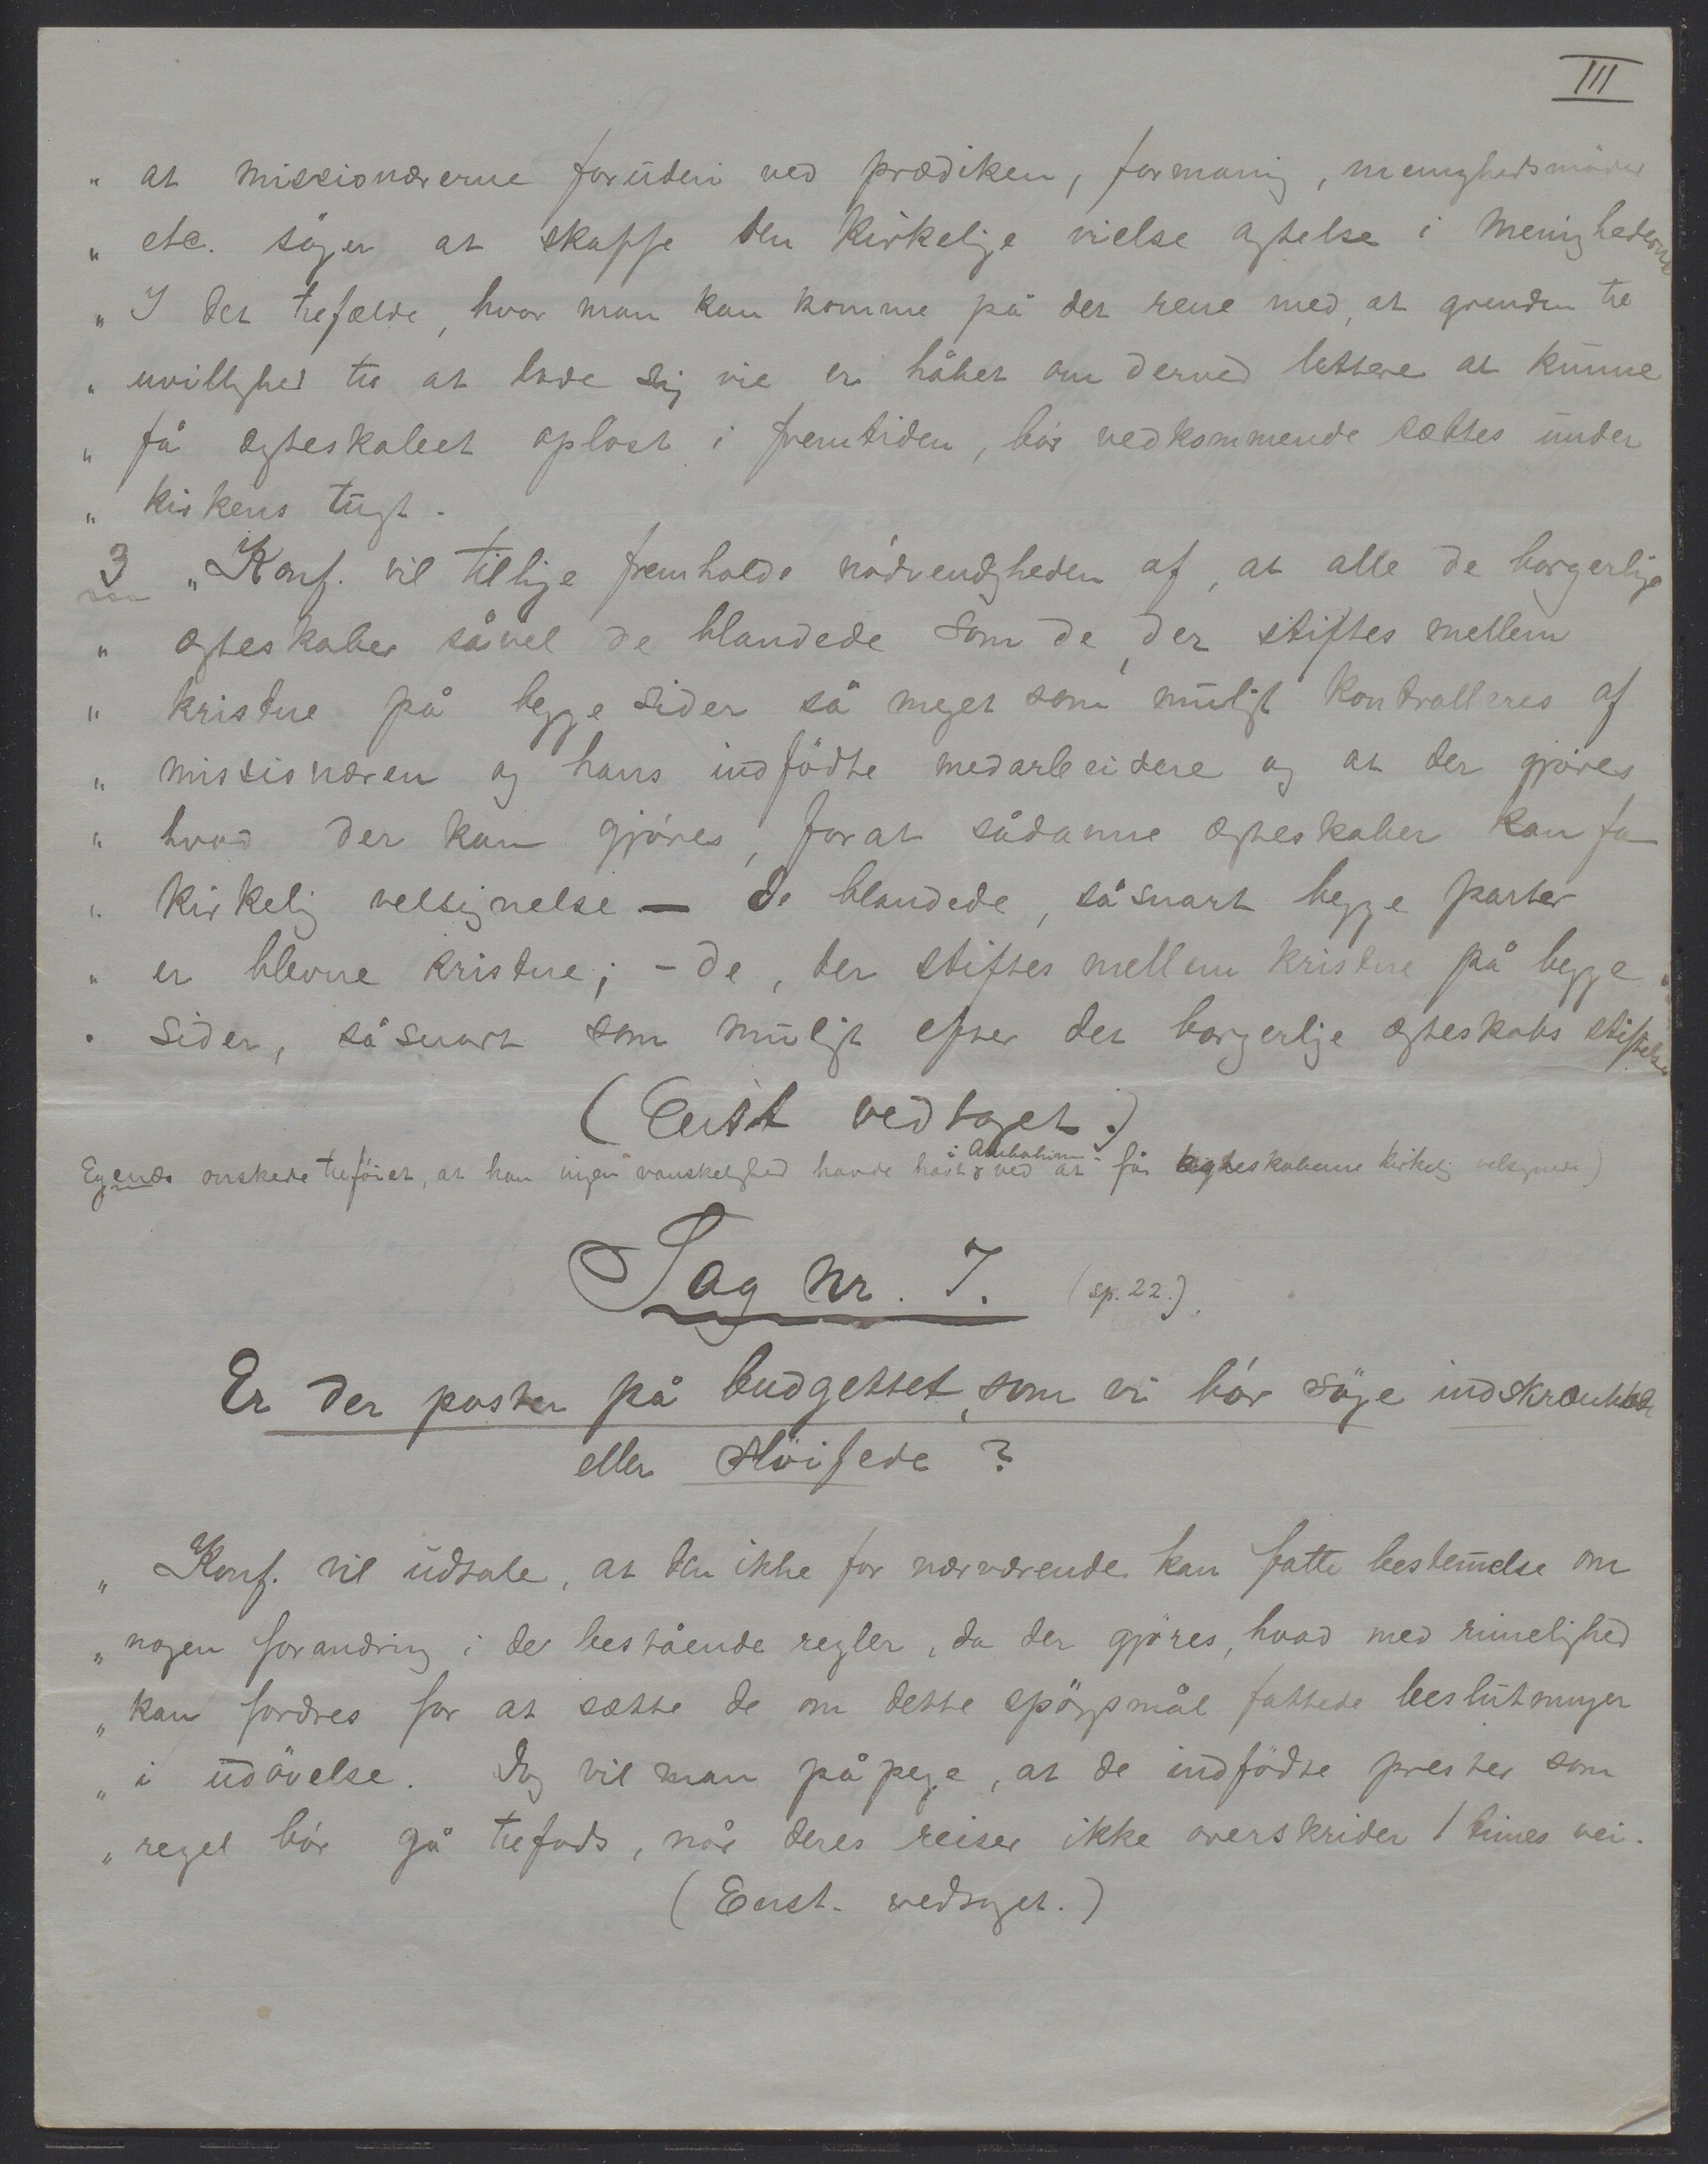 III
" at missionærerne foruden ved prædiken, formaning, menighedsmøder
" etc. søger at skaffe den kirkelige vielse agtelse i menighederne
" I det tilfælde, hvor man kan komme på det rene med, at grunden til
" uvillighed til at lade sig vie er håbet om derved lettere at kunne
" få ægteskabet opløst i fremtiden, bør vedkommende sættes under
" kirkens tugt.
3 "Konf. vil tillige fremholde nødvendigheden af, at alle de borgerlige
" ægteskaber såvel de blandede som de, der stiftes mellem
" kristne på begge sider så meget som muligt kontrolleres af
" missionæren og hans indfødte medarbeidere og at der gjøres
" hvad der kan gjøres, forat sådanne ægteskaber kan få
" kirkelig velsignelse — de blandede, såsnart begge parter
" er blevne kristne; - de, der stiftes mellem kristne på begge
" sider, såsnart som muligt efter det borgerlige ægteskabs stiftelse.
(Enst vedtaget.)
i
Egenæs ønskede tilføiet, at han ingen vanskelighed havde havt ved at få ægteskaberne kirkelig velsignede)
Sag nr. 7. (sp. 22.)
Er der poster på budgettet, som vi bør søge indskrænkede
eller sløifede?
" Konf. vil udtale, at den ikke for nærværende kan fatte bestemelse om
" nogen forandring i de bestående regler, da der gjøres, hvad med rimelighed
" kan fordres for at sætte de om dette spørgsmål fattede beslutninger
" i udøvelse. Dog vil man påpege, at de indfødte prester som
" regel bør gå tilfods, når deres reiser ikke overskrider 1 times vei.
(Enst. vedtaget.)